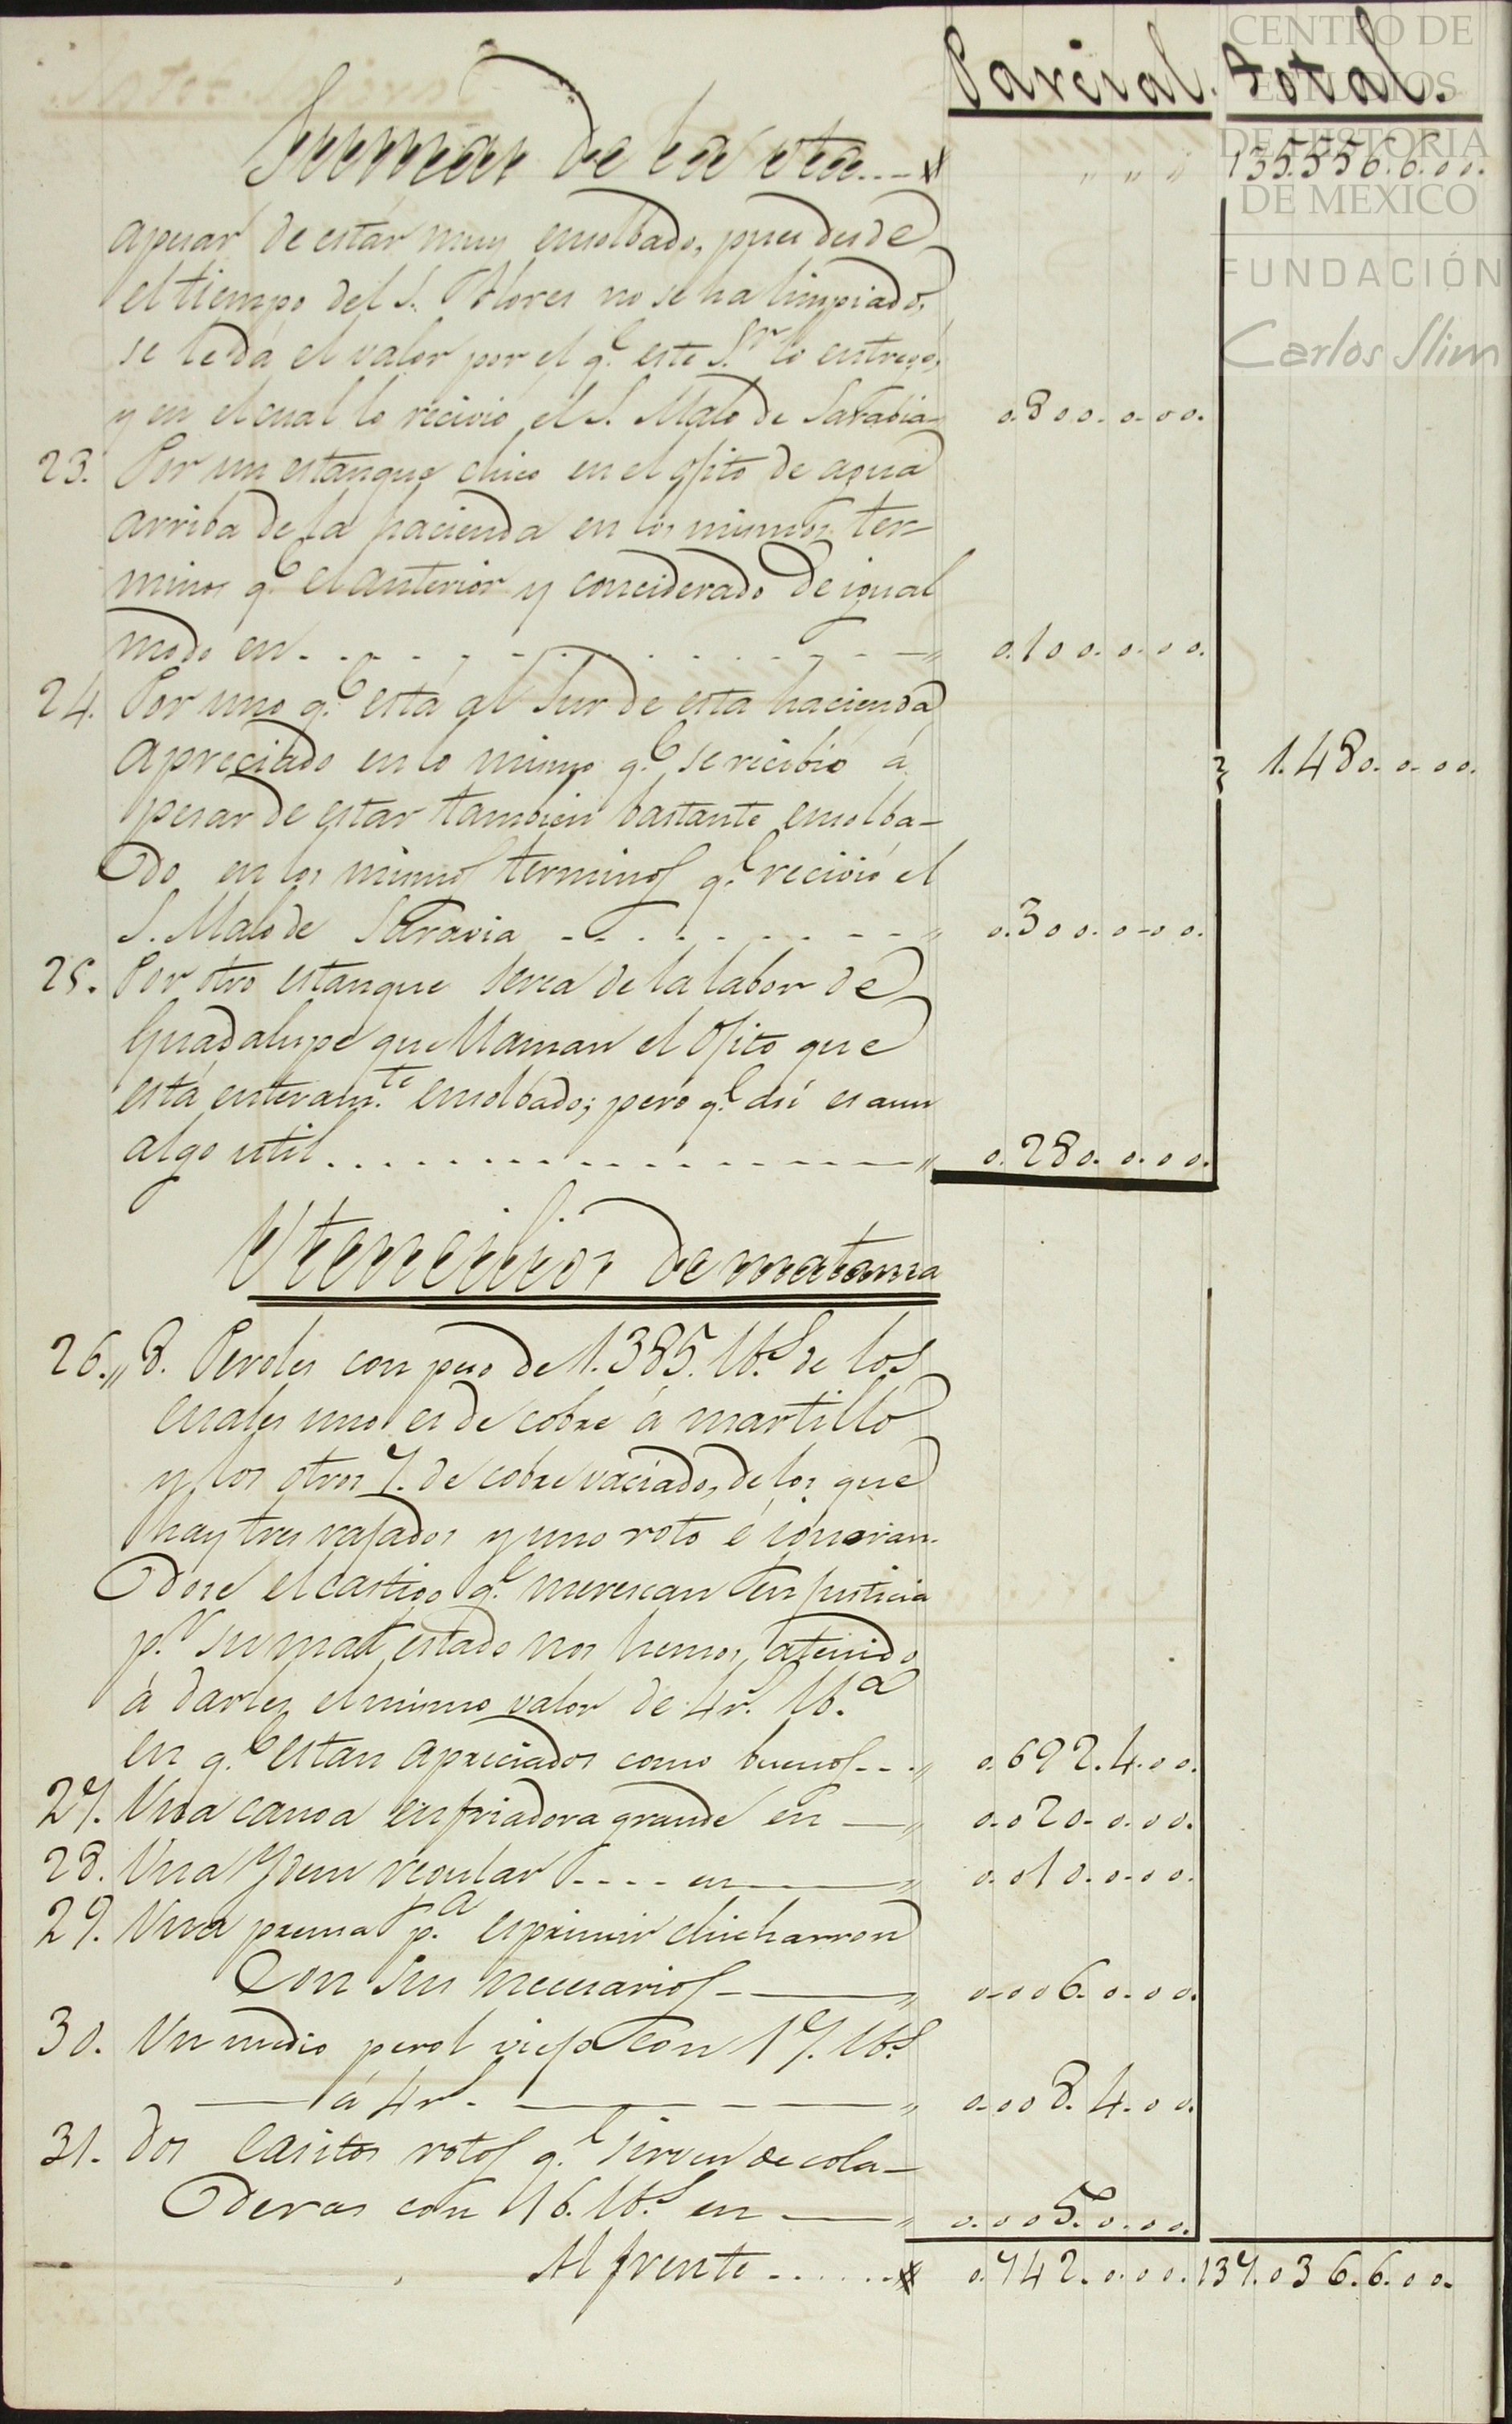 Parcial. total.
Sumas de la vta. „ „ „ 135.556.6.00.
apesar de estár muy ensolbado, pues desde
el tiempo del S. Flores no se ha limpiado,
se le dá el valor por el q.e este S.r lo entregó,
y en el cual lo recivio el S. Malo de Sarabia 0.800.0.00.
23. Por un estanque chico en el ojito de agua
arriba de la hacienda en los mismos ter-
minos q.e el anterior y conciderado de igual
modo en „ 0.100.0.00.
24. Por uno q.e está al Sur de esta hacienda
apreciado en lo mismo q.e se recibió á
pesar de estar tambien bastante ensolba-
do en los mismos terminos q.e recivió el
S. Malo de Saravia „ 0.300.0.00. 1.480.0.00.
25. Por otro estanque serca de la labor de
Guadalupe que llaman el Ojito que
está enteram.te ensolbado; pero q.e así es aun
algo util „ 0.280.0.00.
Vtencilios de matansa
26. „ 8. Peroles con peso de 1.385. lbs. de los
cuales uno es de cobre á martillo
y los otros 7. de cobre vaciado, de los que
hay tres rajados y uno roto é ignoran-
dose el castigo q.e merescan en justicia
p.r su mal estado nos hemos atenido
á darles el mismo valor de 4 r.s lb.a
en q.e estan apreciados como buenos „ 0.692.4.00.
27. Una canoa enfriadora grande en „ 0.020.0.00.
28. Una Ydem regular en „ 0.010.0.00.
29. Una prensa p.a esprimir chicharron
Con sus necesarios „ 0.006.0.00.
30. Un medio perol viejo con 17. lbs.
á 4 r.s „ 0.008.4.00.
31. dos casitos rotos q.e sirven de cola-
deras con 16. lbs. en „ 0.005.0.00.
Al frente 0.742.0.00. 137.036.6.00.
CENTRO DE
ESTUDIOS
DE HISTORIA
DE MEXICO
FUNDACIÓN
Carlos Slim